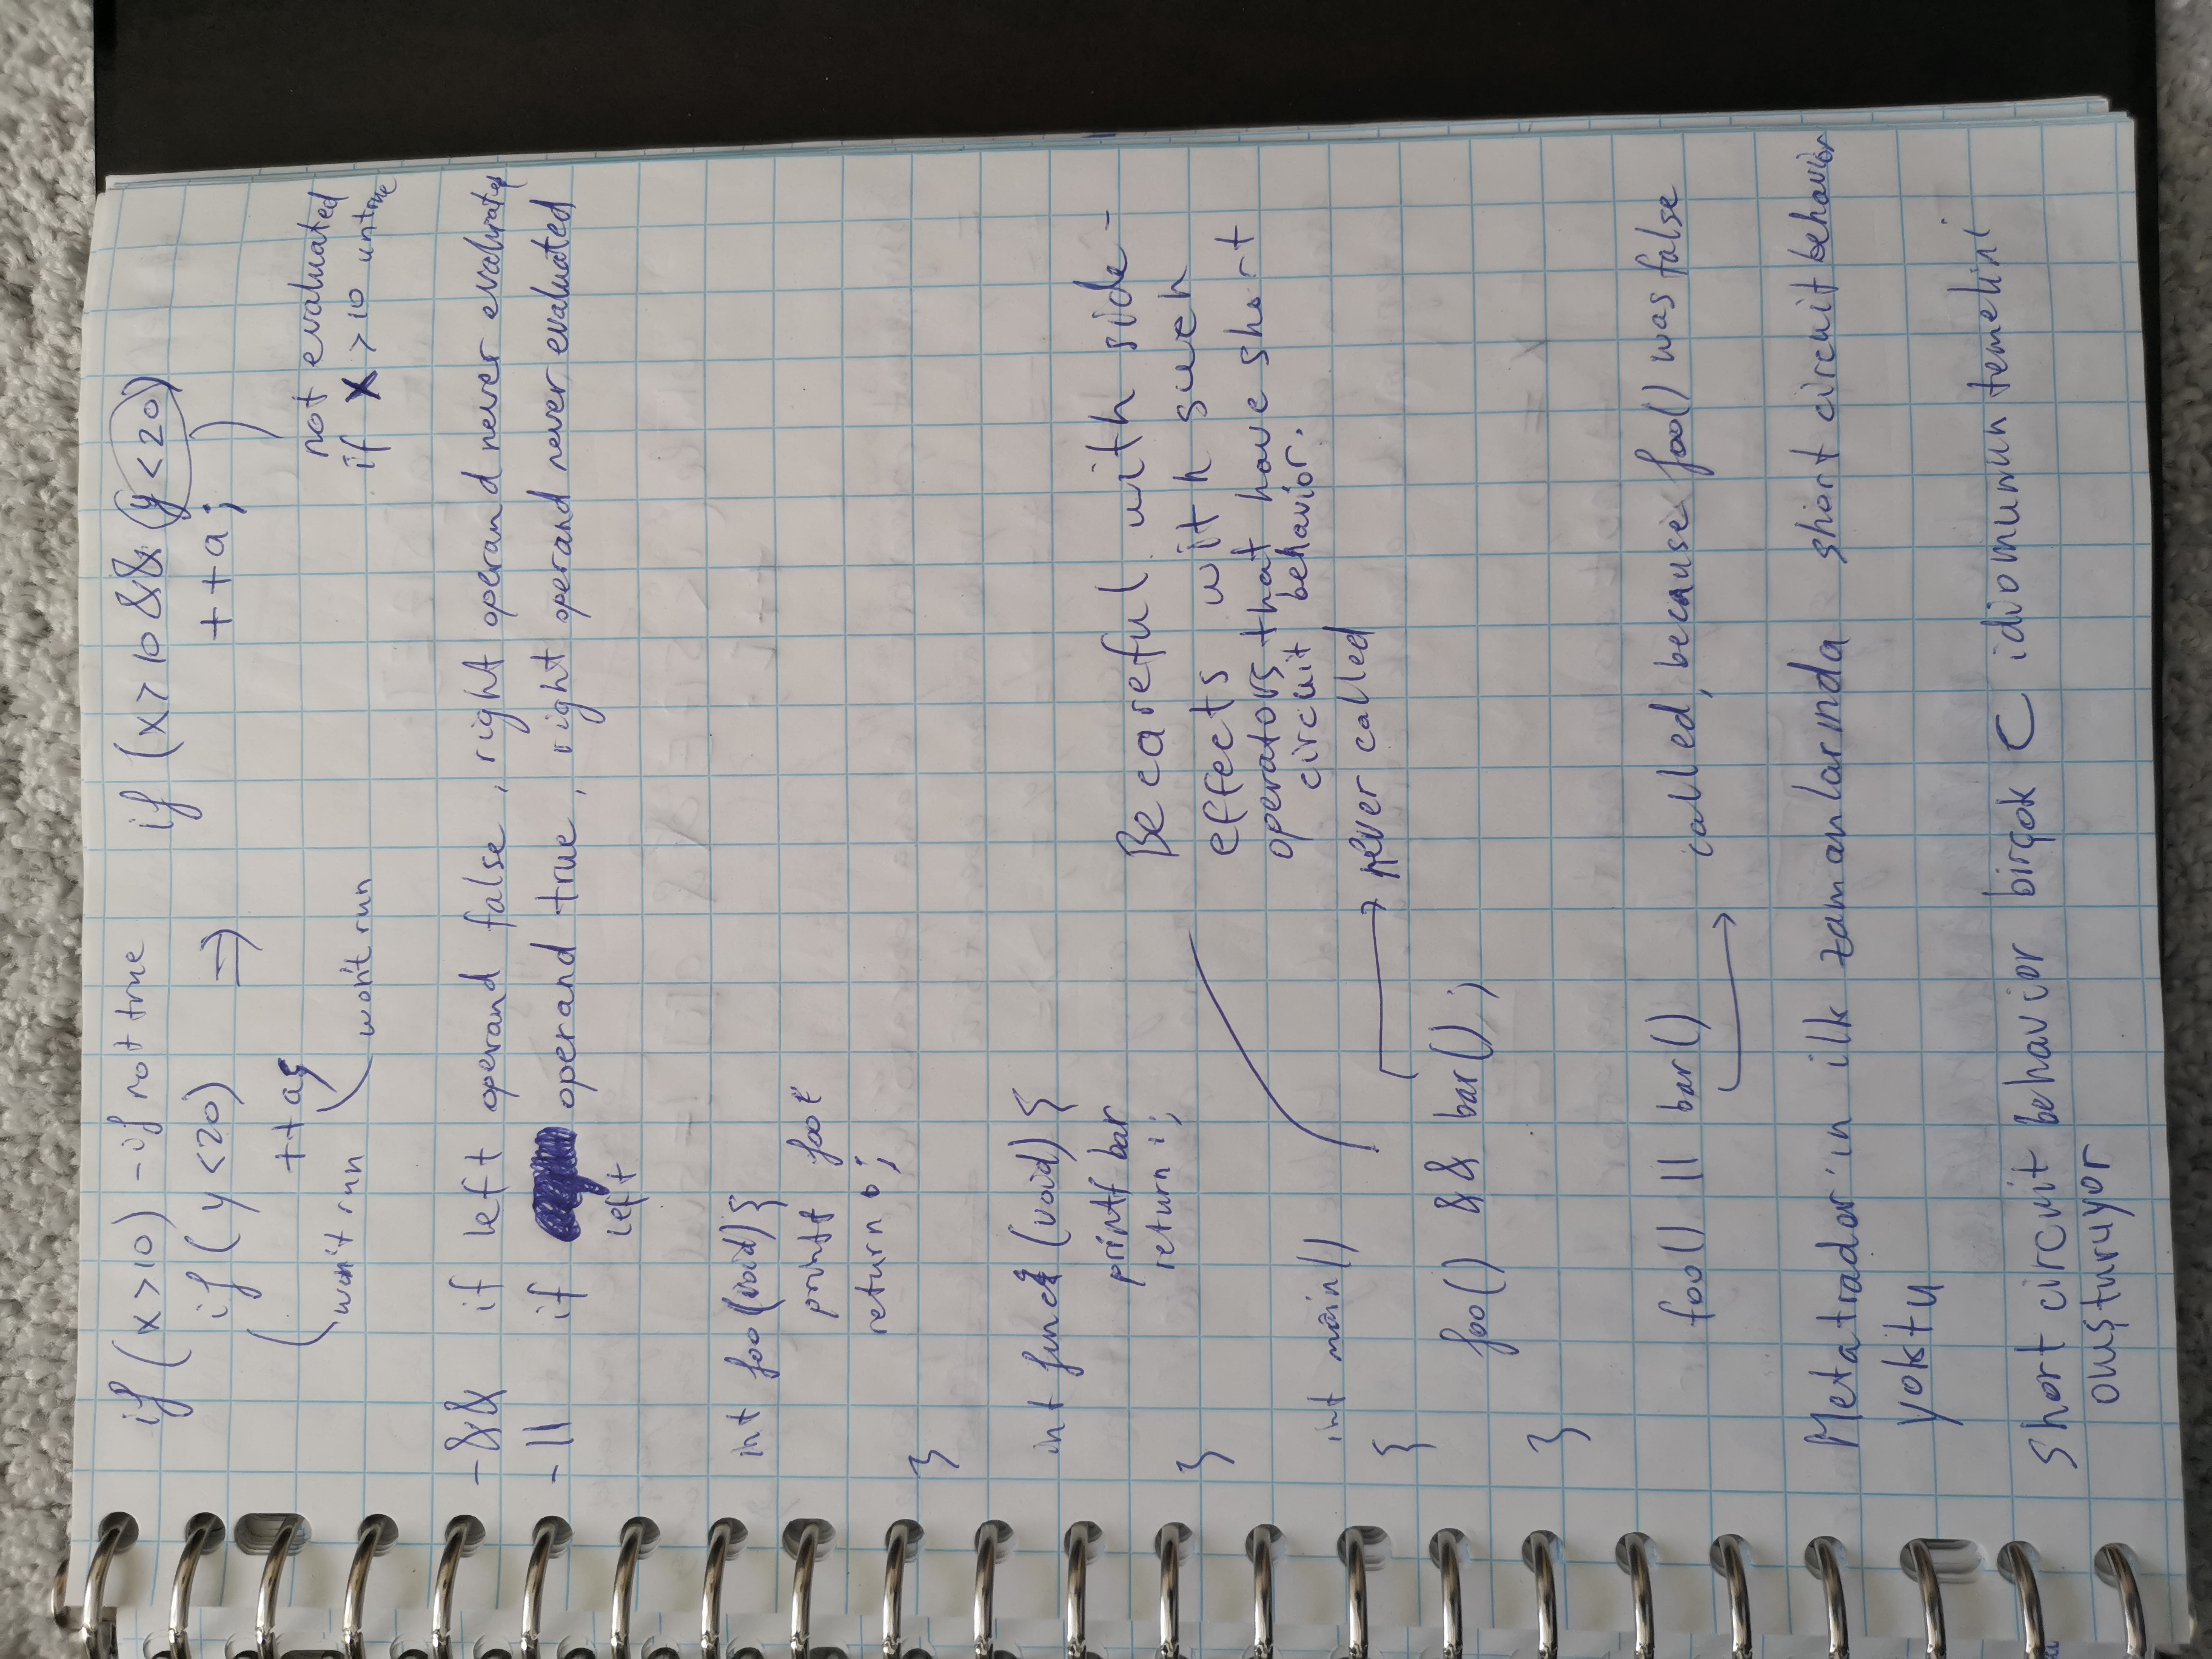 if (x>10) - if not true
if (y<20)
++a;
won't run
won't run
⇒
if (x>10 && (y<20)
++a;
not evaluated
if x >10 untrue
-&& if left operand false, right operand never evaluated
-|| if operand true, right operand never evaluated
left
int foo(void){
printf foo
return 0;
}
int func (void) {
printf bar
return 1;
}
Be careful with side-
effects with such
operators that have short
circuit behavior.
int main()
{
never called
foo() && bar();
}
foo() || bar() → called, because foo() was false
Metatrador'ın ilk zamanlarında short circuit behavior
yoktu
Short circuit behavior birçok C idiomunun temelini
oluşturuyor